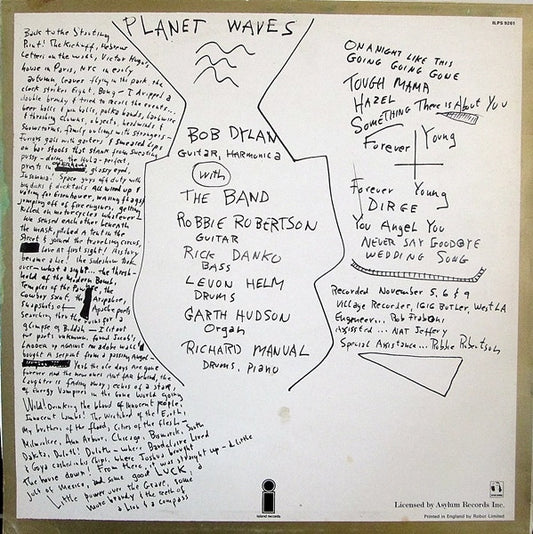 PLANET WAVES
ILPS 9261
Back to the Starting
Point! The Kickoff, Hebrew
Letters on the wall, Victor Hugo's
house in Paris, NYC in early
autumn, leaves flying in the park, the
clock strikes Eight, Bong — I dropped a
double brandy & tried to recall the events..
beer halls & pin balls, polka bands, barbwire
& thrashing clowns, objects, headwinds &
snowstorms, family outings with strangers —
Furious gals with garters & smeared lips
on bar stools that stank from sweating
pussy — doing the hula — perfect,
priests in glossy eyed,
Insomnia! Space guys off duty with
big dicks & duck tails all wired up &
voting for Eisenhower, waving flags &
jumping off of fire engines, getting
killed on motorcycles whatever —
We sensed each other beneath
the mask, pitched a tent in the
Street & joined the traveling circus,
love at first sight! History
became a lie! the sideshow took
over — what a sight... the thresh-
hold of the Modern Bomb,
Temples of the
Cowboy saint, the Airplane,
snapshots of Apache poets
searching thru the ruins for a
glimpse of Buddah — I lit out
for parts unknown, found Jacob's
ladder up against an adobe wall &
bought a serpent from a passing Angel
Yeah the ole days are gone
forever and the new ones aint far behind, the
Laughter is fading away, echos of a star,
of Energy Vampires in the Gone World going
Wild! Drinking the blood of innocent people,
Innocent Lambs! The Wretched of the Earth,
My brothers of the flood, Cities of the flesh —
Milwaukee, Ann Arbor, Chicago, Bismarck, South
Dakota, Duluth! Duluth — where Baudelaire Lived
& Goya cashed in his Chips, where Joshua brought
the house down! From there, it was straight up — a little
jolt of Mexico, and some good LUCK, a
Little power over the Grave, some
more brandy & the teeth of
a lion & a compass
BOB DYLAN
GUITAR, HARMONICA
with
THE BAND
ROBBIE ROBERTSON
GUITAR
RICK DANKO
BASS
LEVON HELM
DRUMS
GARTH HUDSON
Organ
RICHARD MANUAL
DRUMS, PIANO
ON A NIGHT LIKE THIS
GOING GOING GONE
TOUGH MAMA
HAZEL
SOMETHING There is About You
Forever Young
Forever Young
DIRGE
You Angel You
NEVER SAY GOODBYE
WEDDING SONG
Recorded November 5, 6 & 9
Village Recorder, 1616 Butler, West LA
Engeneer... Rob Fraboni
Assisted... NAT Jeffery
Special Assistance... Robbie Robertson
island records
Licensed by Asylum Records Inc.
Printed in England by Robor Limited